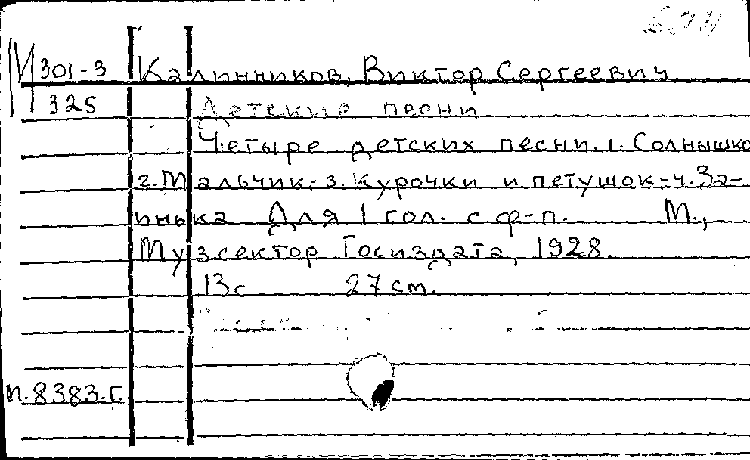 М 301-3 Калинников, Виктор Сергеевич
325 Детские песни
Четыре детских песни. 1. Солнышко
2. Мальчик.-3. Курочки и петушок.-4. За-
инька Для 1 гол. с ф-п. М.,
Музсектор Госиздата, 1928.
13с 27 см.
п.8383.г.